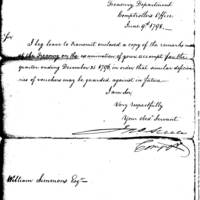 Treasury Department
Comptrollers Office
June 9th 1798.
Sir
I beg leave to transmit enclosed a copy of the remarks made
at the Treasury on the examination of your account for the
quarter ending December 31 1796 in order that similar deficien-
cies of vouchers may be guarded against in future.
I am Sir
Very respectfully
Your obed Servant
Jno Steele
Comptr
William Simmons Esqr